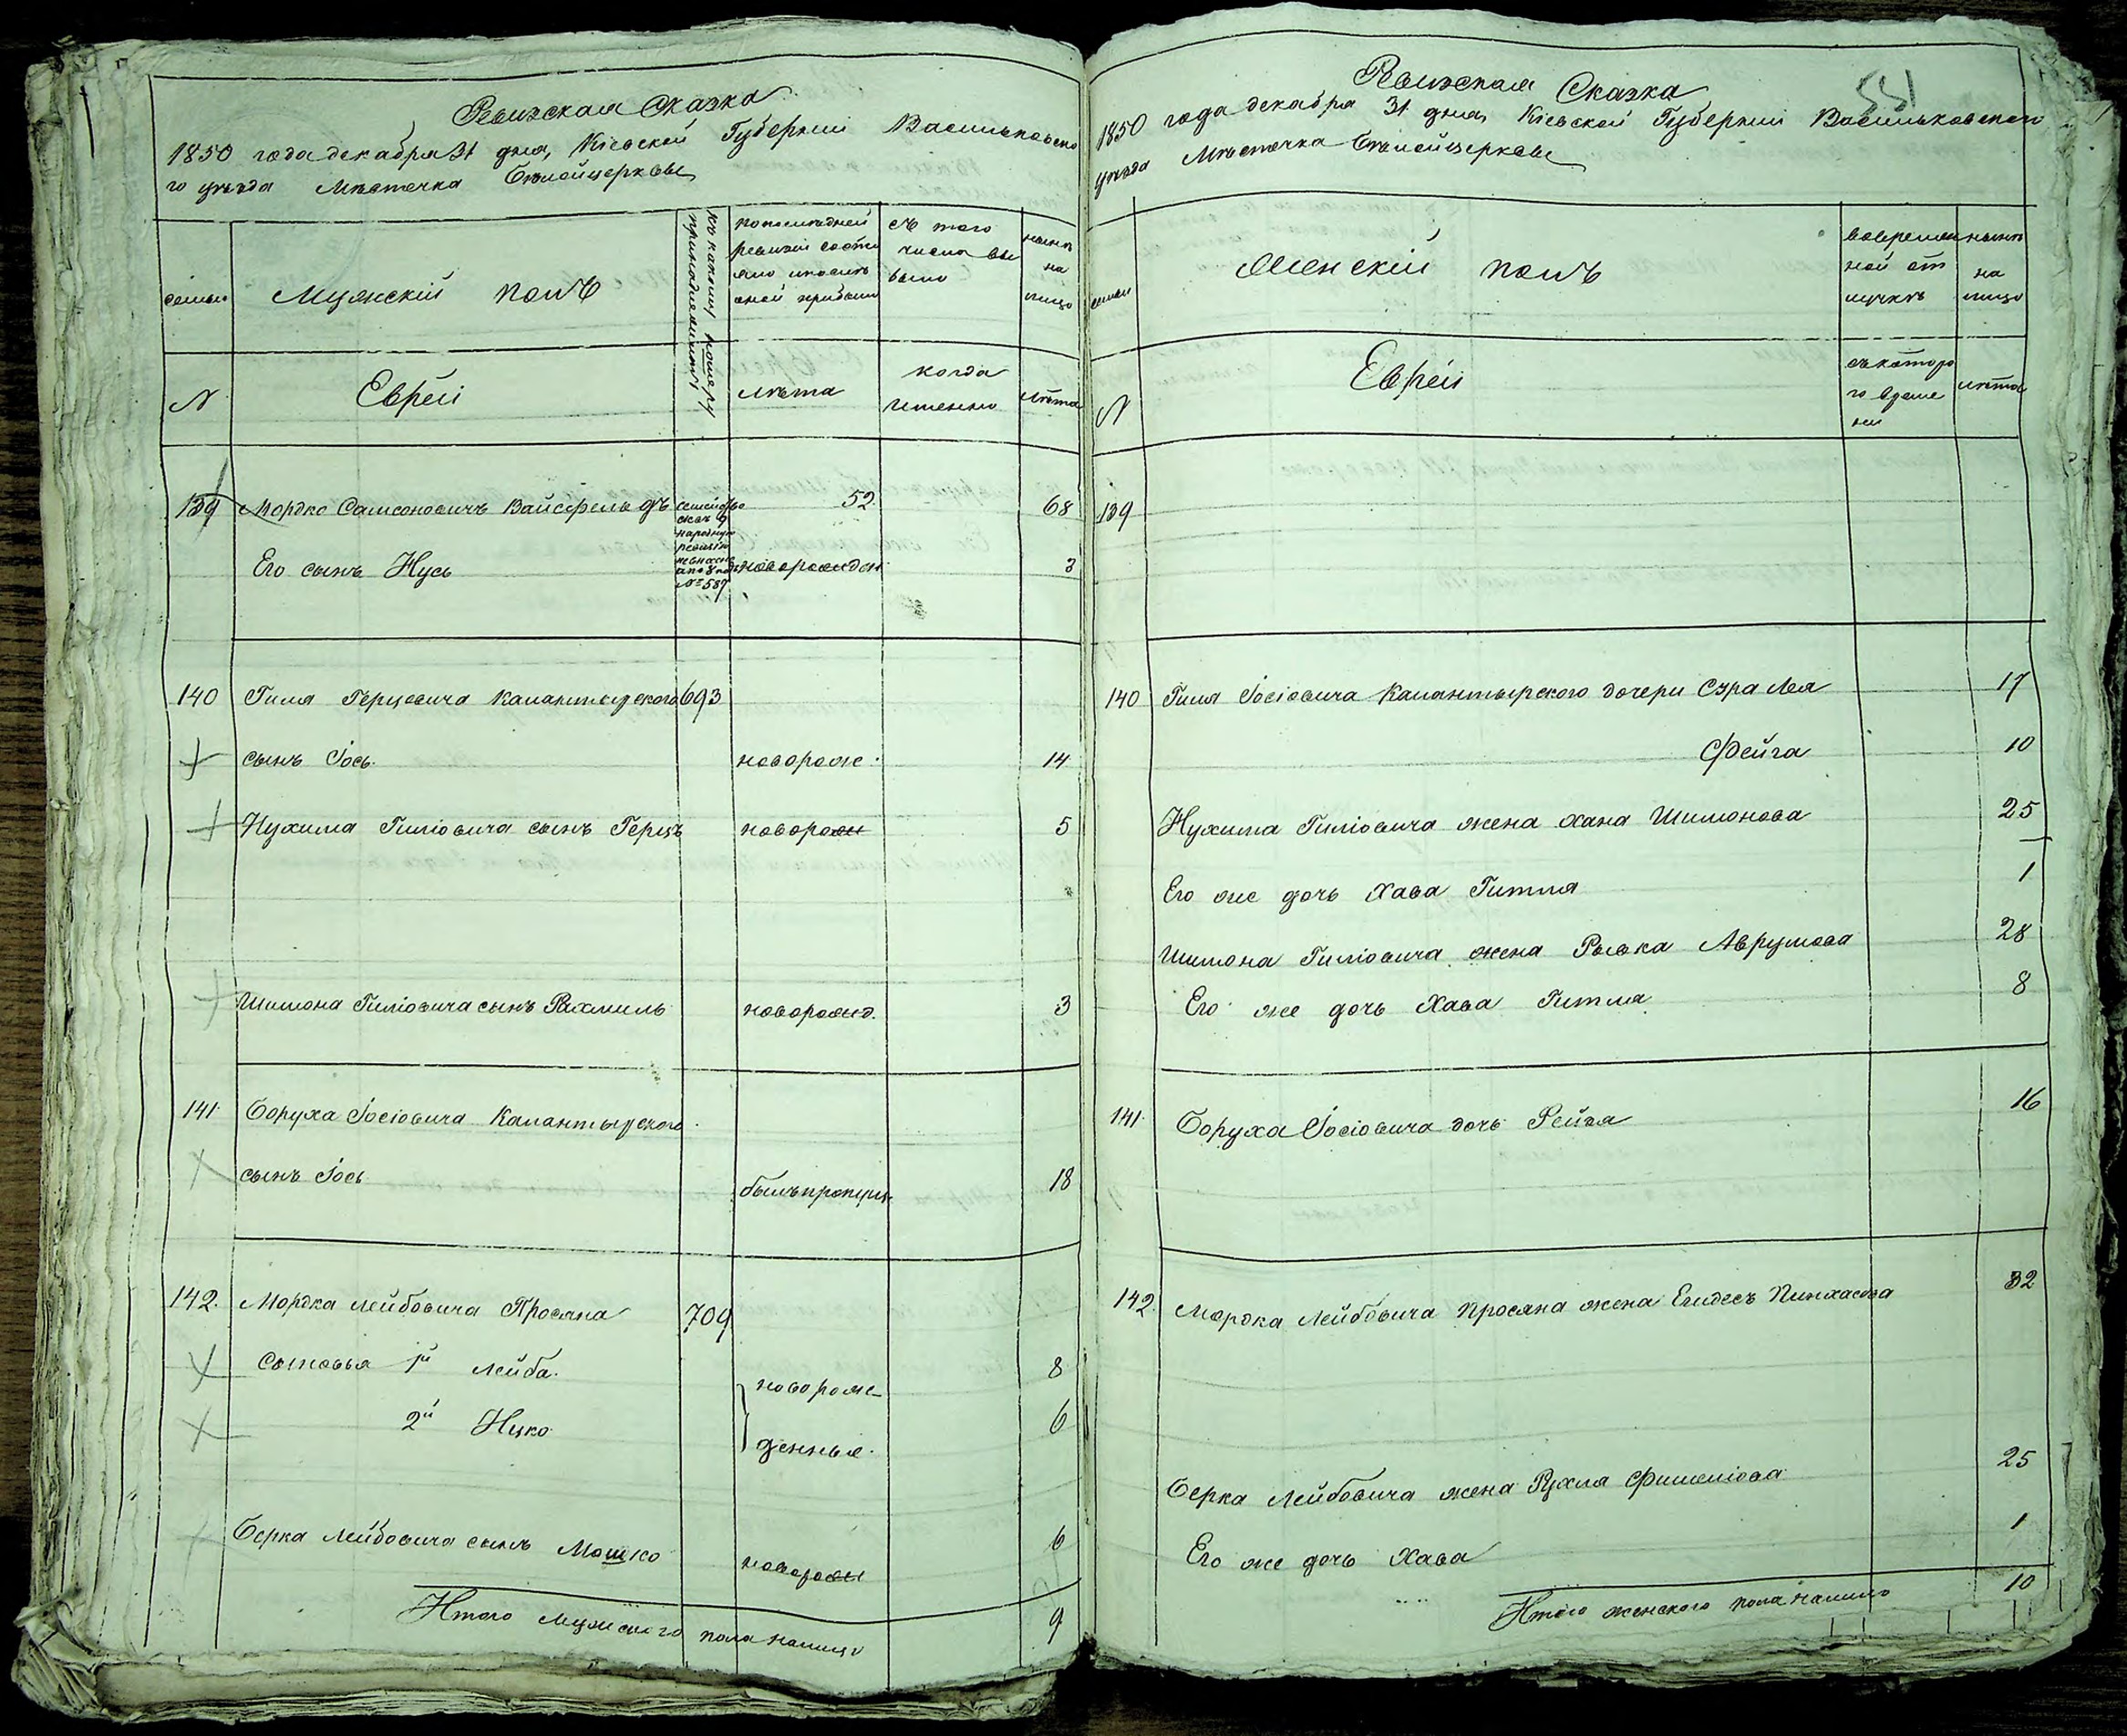 Ревизская Сказка
1850 года декабря 31 дня, Кіевской Губерніи Васильковско
го уезда Местечка Белойцеркви
семьи
Мужеский полъ
къ какому номеру принадлежитъ
по последней
ревизіи состо
яло и после
оной прибыло
съ того
числа вы
было
ныне
на
лицо
N
Евреи
лета
когда
именно
лета
139 Мордко Самсоновичъ Вайсфельдъ 52 68
семейство
ревизію
№ 587
Его сынъ Нусь новорожден 3
140 Гиля Герцовича Калантырского 693
сынъ Іось новорож. 14
Нухима Гиліовича сынъ Герцъ новорож 5
Шимона Гиліовича сынъ Рахмиль новорожд. 3
141 Боруха Іосіовича Калантырского
сынъ Іось былъ пропущ. 18
142. Мордка Лейбовича Просяна 709
Сыновья 1й Лейба. новорож 8
2й Ицко денные. 6
Берка Лейбовича сынъ Мошко новорож 6
Итого мужеского пола налицо 9
551
Ревизская Сказка
1850 года декабря 31 дня, Кіевской Губерніи Васильковского
уезда Местечка Белойцеркви
семьи
Женскій полъ
во времен
ной от
лучке
ныне
на
лицо
N
Евреи
съ которо
го време
ни
лета
139
140 Гиля Іосіовича Калантырского дочери Сура Лея 17
Фейга 10
Нухима Гиліовича жена Хана Шимонова 25
Его же дочь Хава Гитля 1
Шимона Гиліовича жена Рывка Аврумова 28
Его же дочь Хава Гитля 8
141 Боруха Іосіовича дочь Рейзя 16
142. Мордка Лейбовича Просяна жена Ендесъ Пинхасова 32
Берка Лейбовича жена Рухля Фишеліова 25
Его же дочь Хава 1
Итого женского пола налицо 10